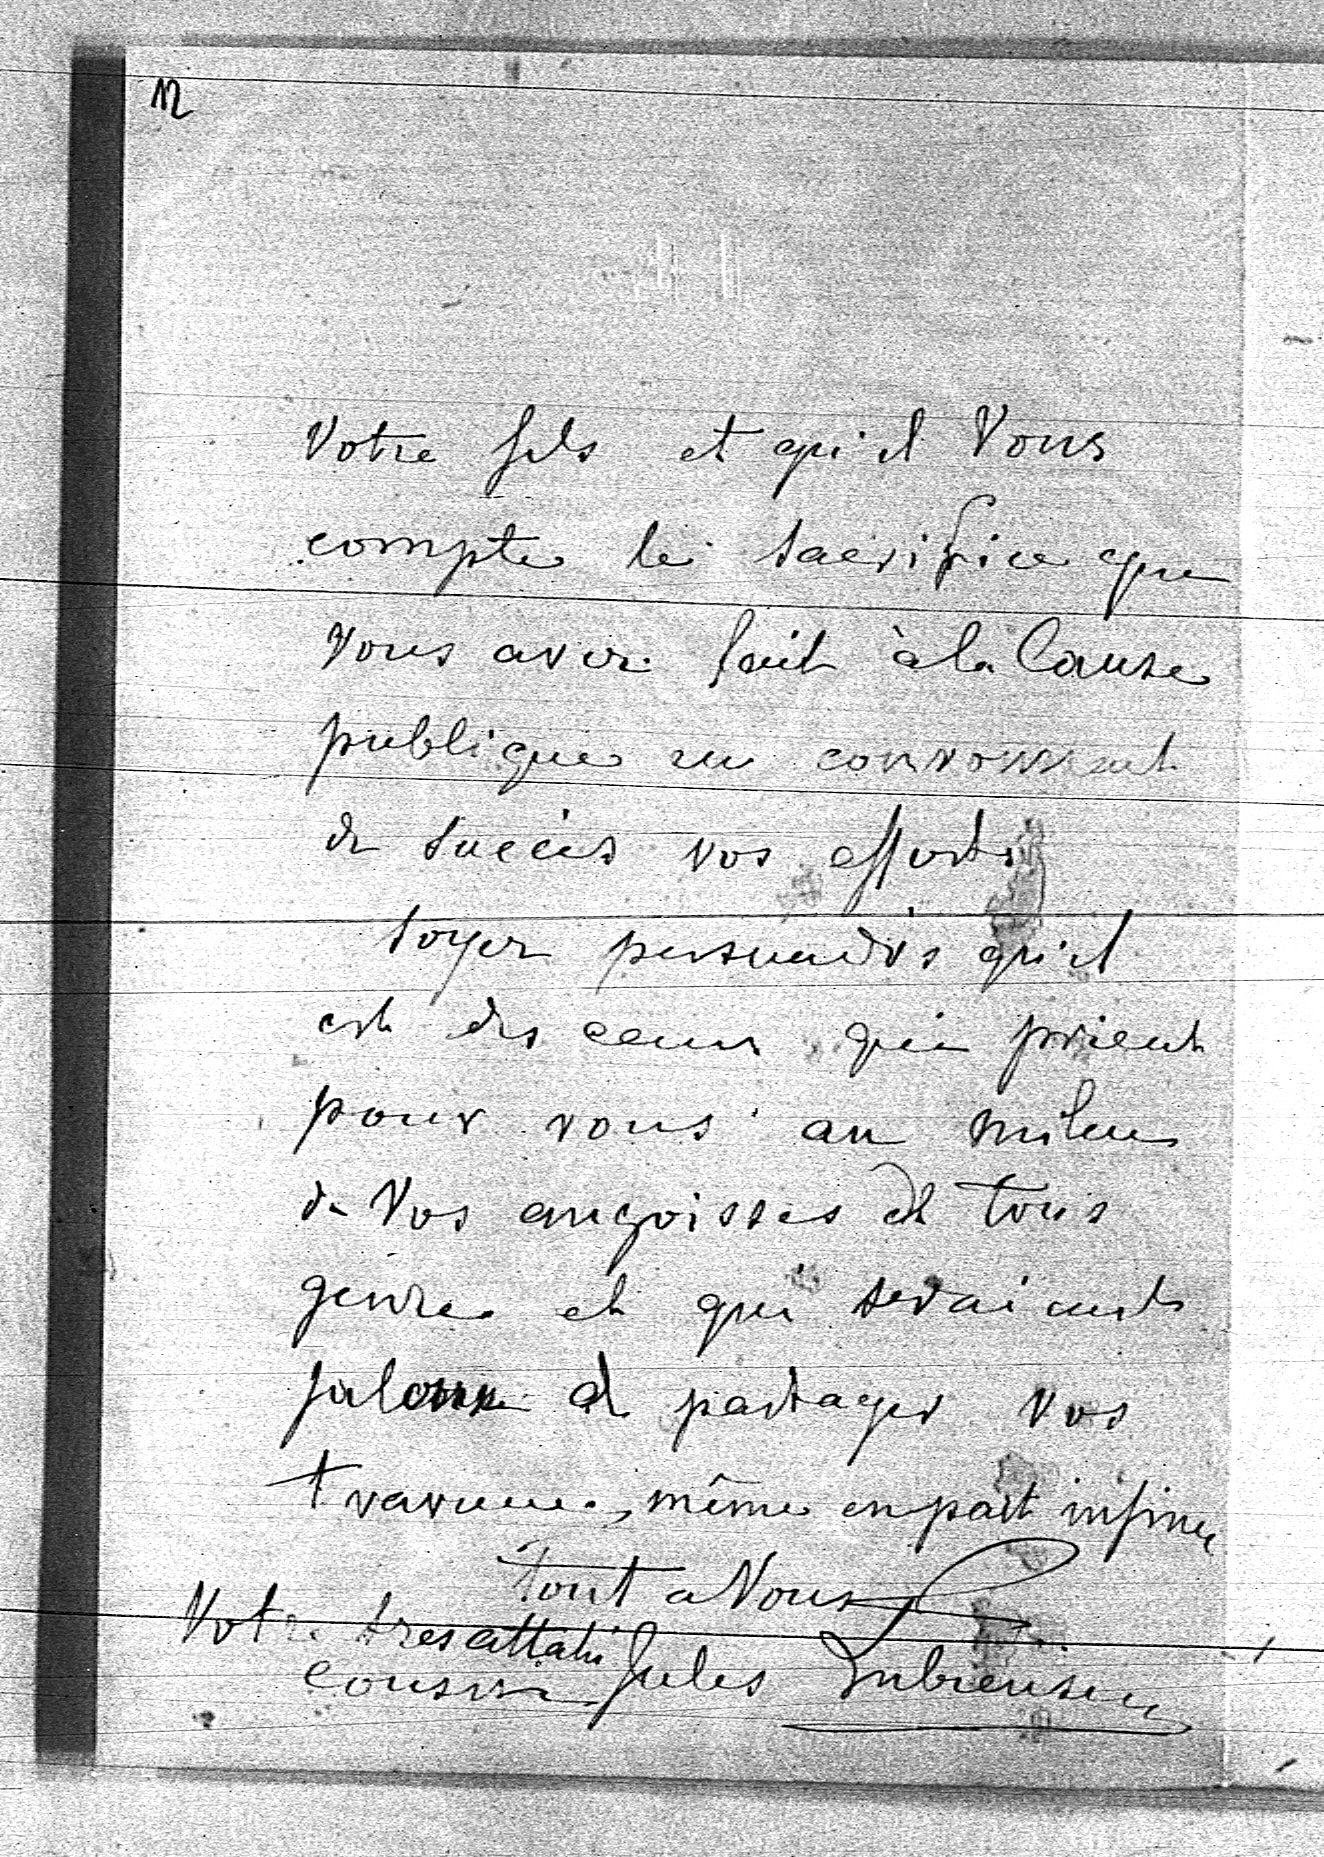 12
Votre fils et qu'il Vous
compte le sacrifice que
Vous avez fait à la Cause
publique en couronnant
de succès vos efforts
soyez persuadés qu'il
est des cœurs qui prient
pour vous au milieu
de Vos angoisses de tous
genre et qui seraient
jaloux de partager vos
travaux, même en part infime
tout a Vous
Votre très attaché
cousin Jules